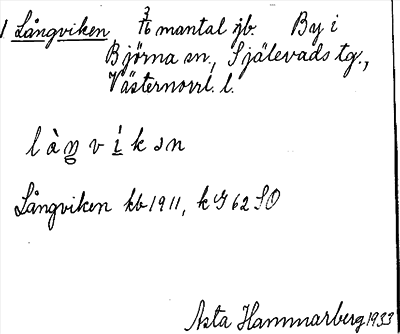 1 Långviken, 3/16 mantal jb. By i
Björna sn., Själevads tg.,
Västernorrl. l.
l à ŋ v í k ə n
Långviken kb 1911, k G 62 SO
Asta Hammarberg 1933